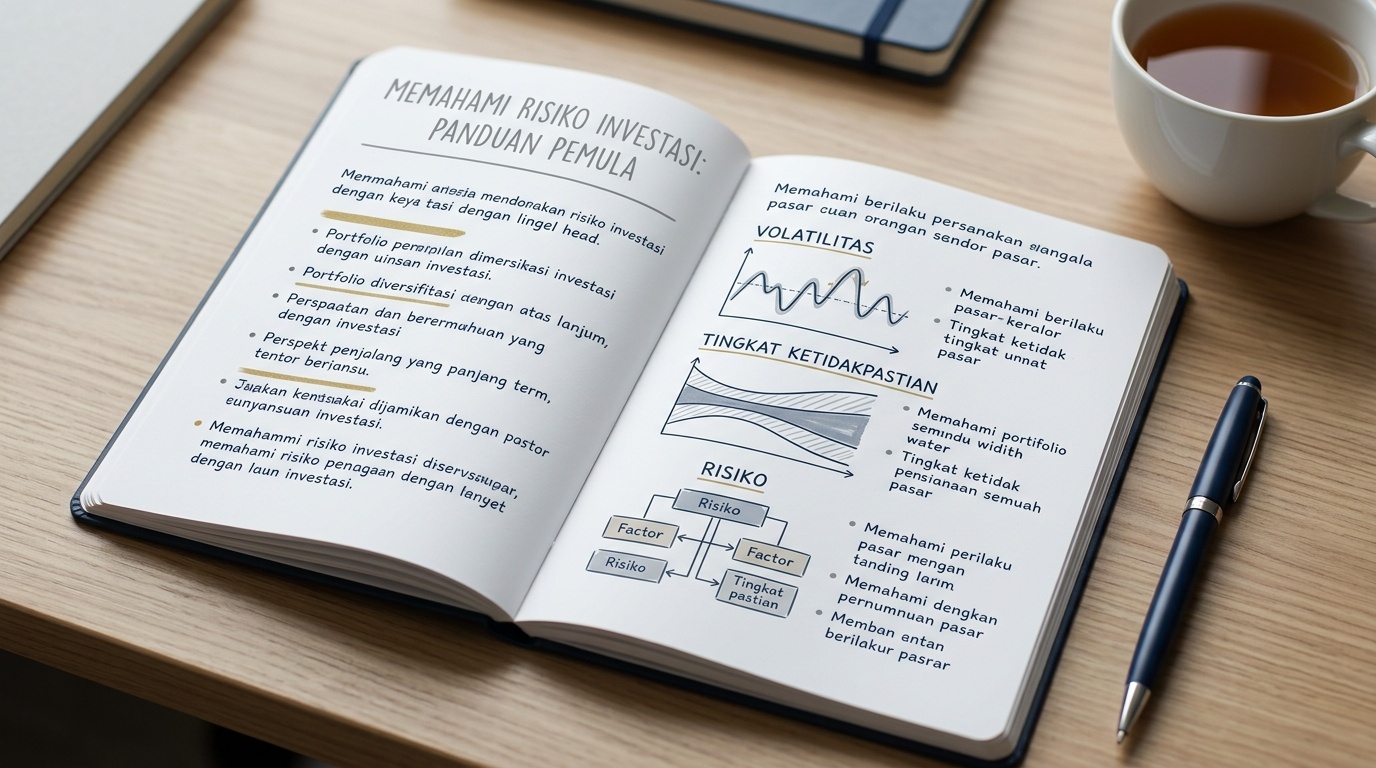 MEMAHAMI RISIKO INVESTASI:
PANDUAN PEMULA
Memmahami anesia mendonakan risiko investasi
dengan keya tasi dengan lingel head.
• Portfolio perapilan dimersikasi investasi
dengan uinsan investasi.
• Portfolio diversifitasi dengan atas lanjum,
• Perspaatan dan berermahuan yang
dengan investasi
• Perspekt penjalang yang panjang term,
tentor beriansu.
• dijamikan dengan pastor
eunyansuan investasi.
• Memahammi risiko investasi
memahami risiko penagaan dengan lanyet
dengan laun investasi.
Memahami berilaku persanakan siangala
pasar cuan orangan sendor pasar.
VOLATILITAS
• Memahami berilaku
pasar-keralor
• Tingkat ketidak
tingkat unnat
pasar
TINGKAT KETIDAKPASTIAN
• Memahami portifolio
semindu width
water
• Tingkat ketidak
pensianaan semuah
pasar
RISIKO
Risiko
Factor
Factor
Risiko
Tingkat
pastian
• Memahami perilaku
pasar mengan
tanding larim
• Memahami dengkan
pernumnuan pasar
• Memban entan
berilakur pasrar